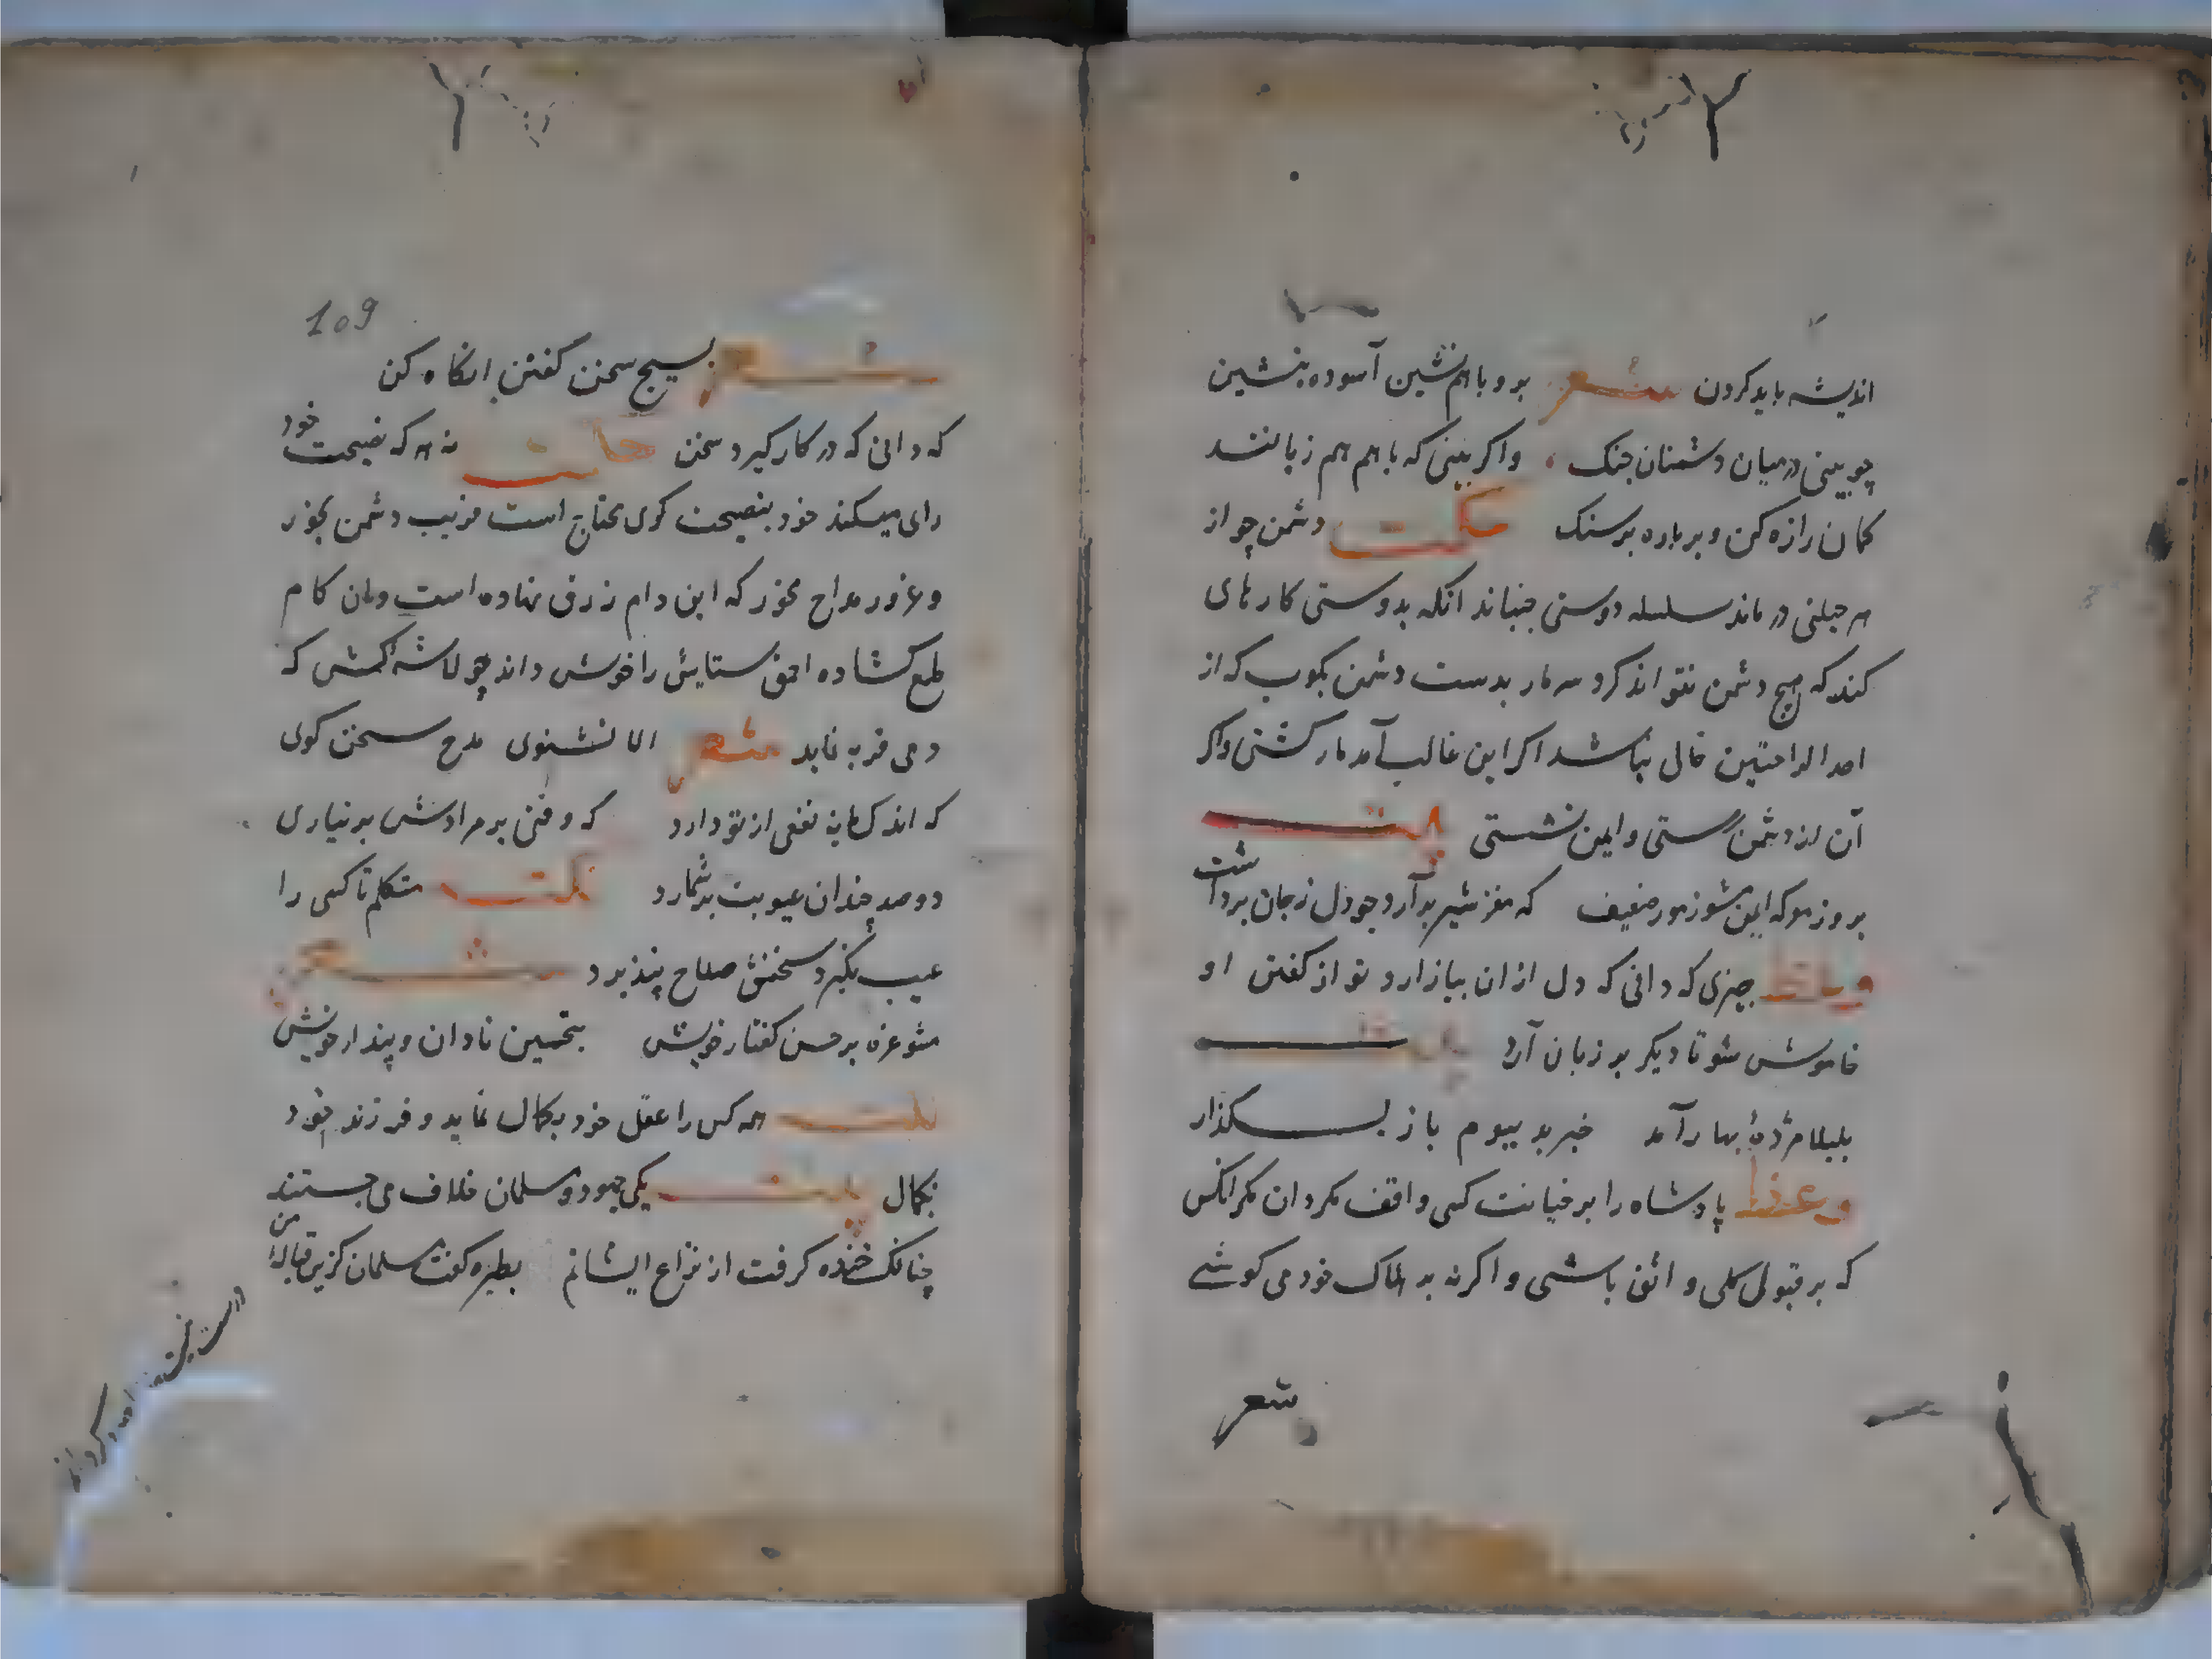 اندیشه باید کردن شعر برو با هم نشین آسوده بنشین
چو بینی در میان دشمنان جنک واکر بینی که با هم هم زبانند
کمان را زه کن و بر باره بر سنک حکمت دشمن چو از
هر حیلتی در ماند سلسله دوستی جنباند انکه بدوستی کارهای
کند که هیچ دشمن نتواند کرد سر مار بدست دشمن بکوب که از
احد الراحتین خالی نباشد اکر این غالب آمد مار کشتی واکر
آن از دشمن رستی و ایمن نشستی بیت
بروز معرکه ایمن مشو ز مور ضعیف که مغز شیر بر آرد چو دل ز جان برداشت
وعظ چیزی که دانی که دل از ان بیازارد تو از کفتن او
خاموش شو تا دیکر بر زبان آرد بیت
بلبلا مژدهٔ بهار آمد خبر بد ببوم باز بسکذار
وعظ پادشاه را بر خیانت کسی واقف مکردان مکر انکس
که بر قبول کلی واثق باشی واکرنه بر هلاک خود می کوشی
شعر
109
شعر بسیج سخن کفتن انکاه کن
که دانی که در کار کیرد سخن نه هر که نصیحت خود
رای میکند خود بنصیحت کوی محتاج است فریب دشمن مخور
و غرور مداح مخر که این دام زرق نهاده است وان کام
طمع کشاده احمق ستایش را خوش داند چو لاشه کشی که
دمی فربه نماید شعر الا تا نشنوی مدح سخن کوی
که اندک مایه نفعی از تو دارد که وقتی بر مرادش بر نیاری
دو صد چندان عیوبت بر شمارد نکت متکلم تا کسی را
عیب نکیرد سخنش صلاح پنذیرد شعر
مشو غره بر حسن کفتار خویش بتحسین نادان و پندار خویش
نکت همه کس را عقل خود بکمال نماید و فرزند خود
بجمال بیت یکی جهود و مسلمان خلاف می جستند
چنانک خنده کرفت از نزاع ایشانم بطیره کفت مسلمان کزین قباله من